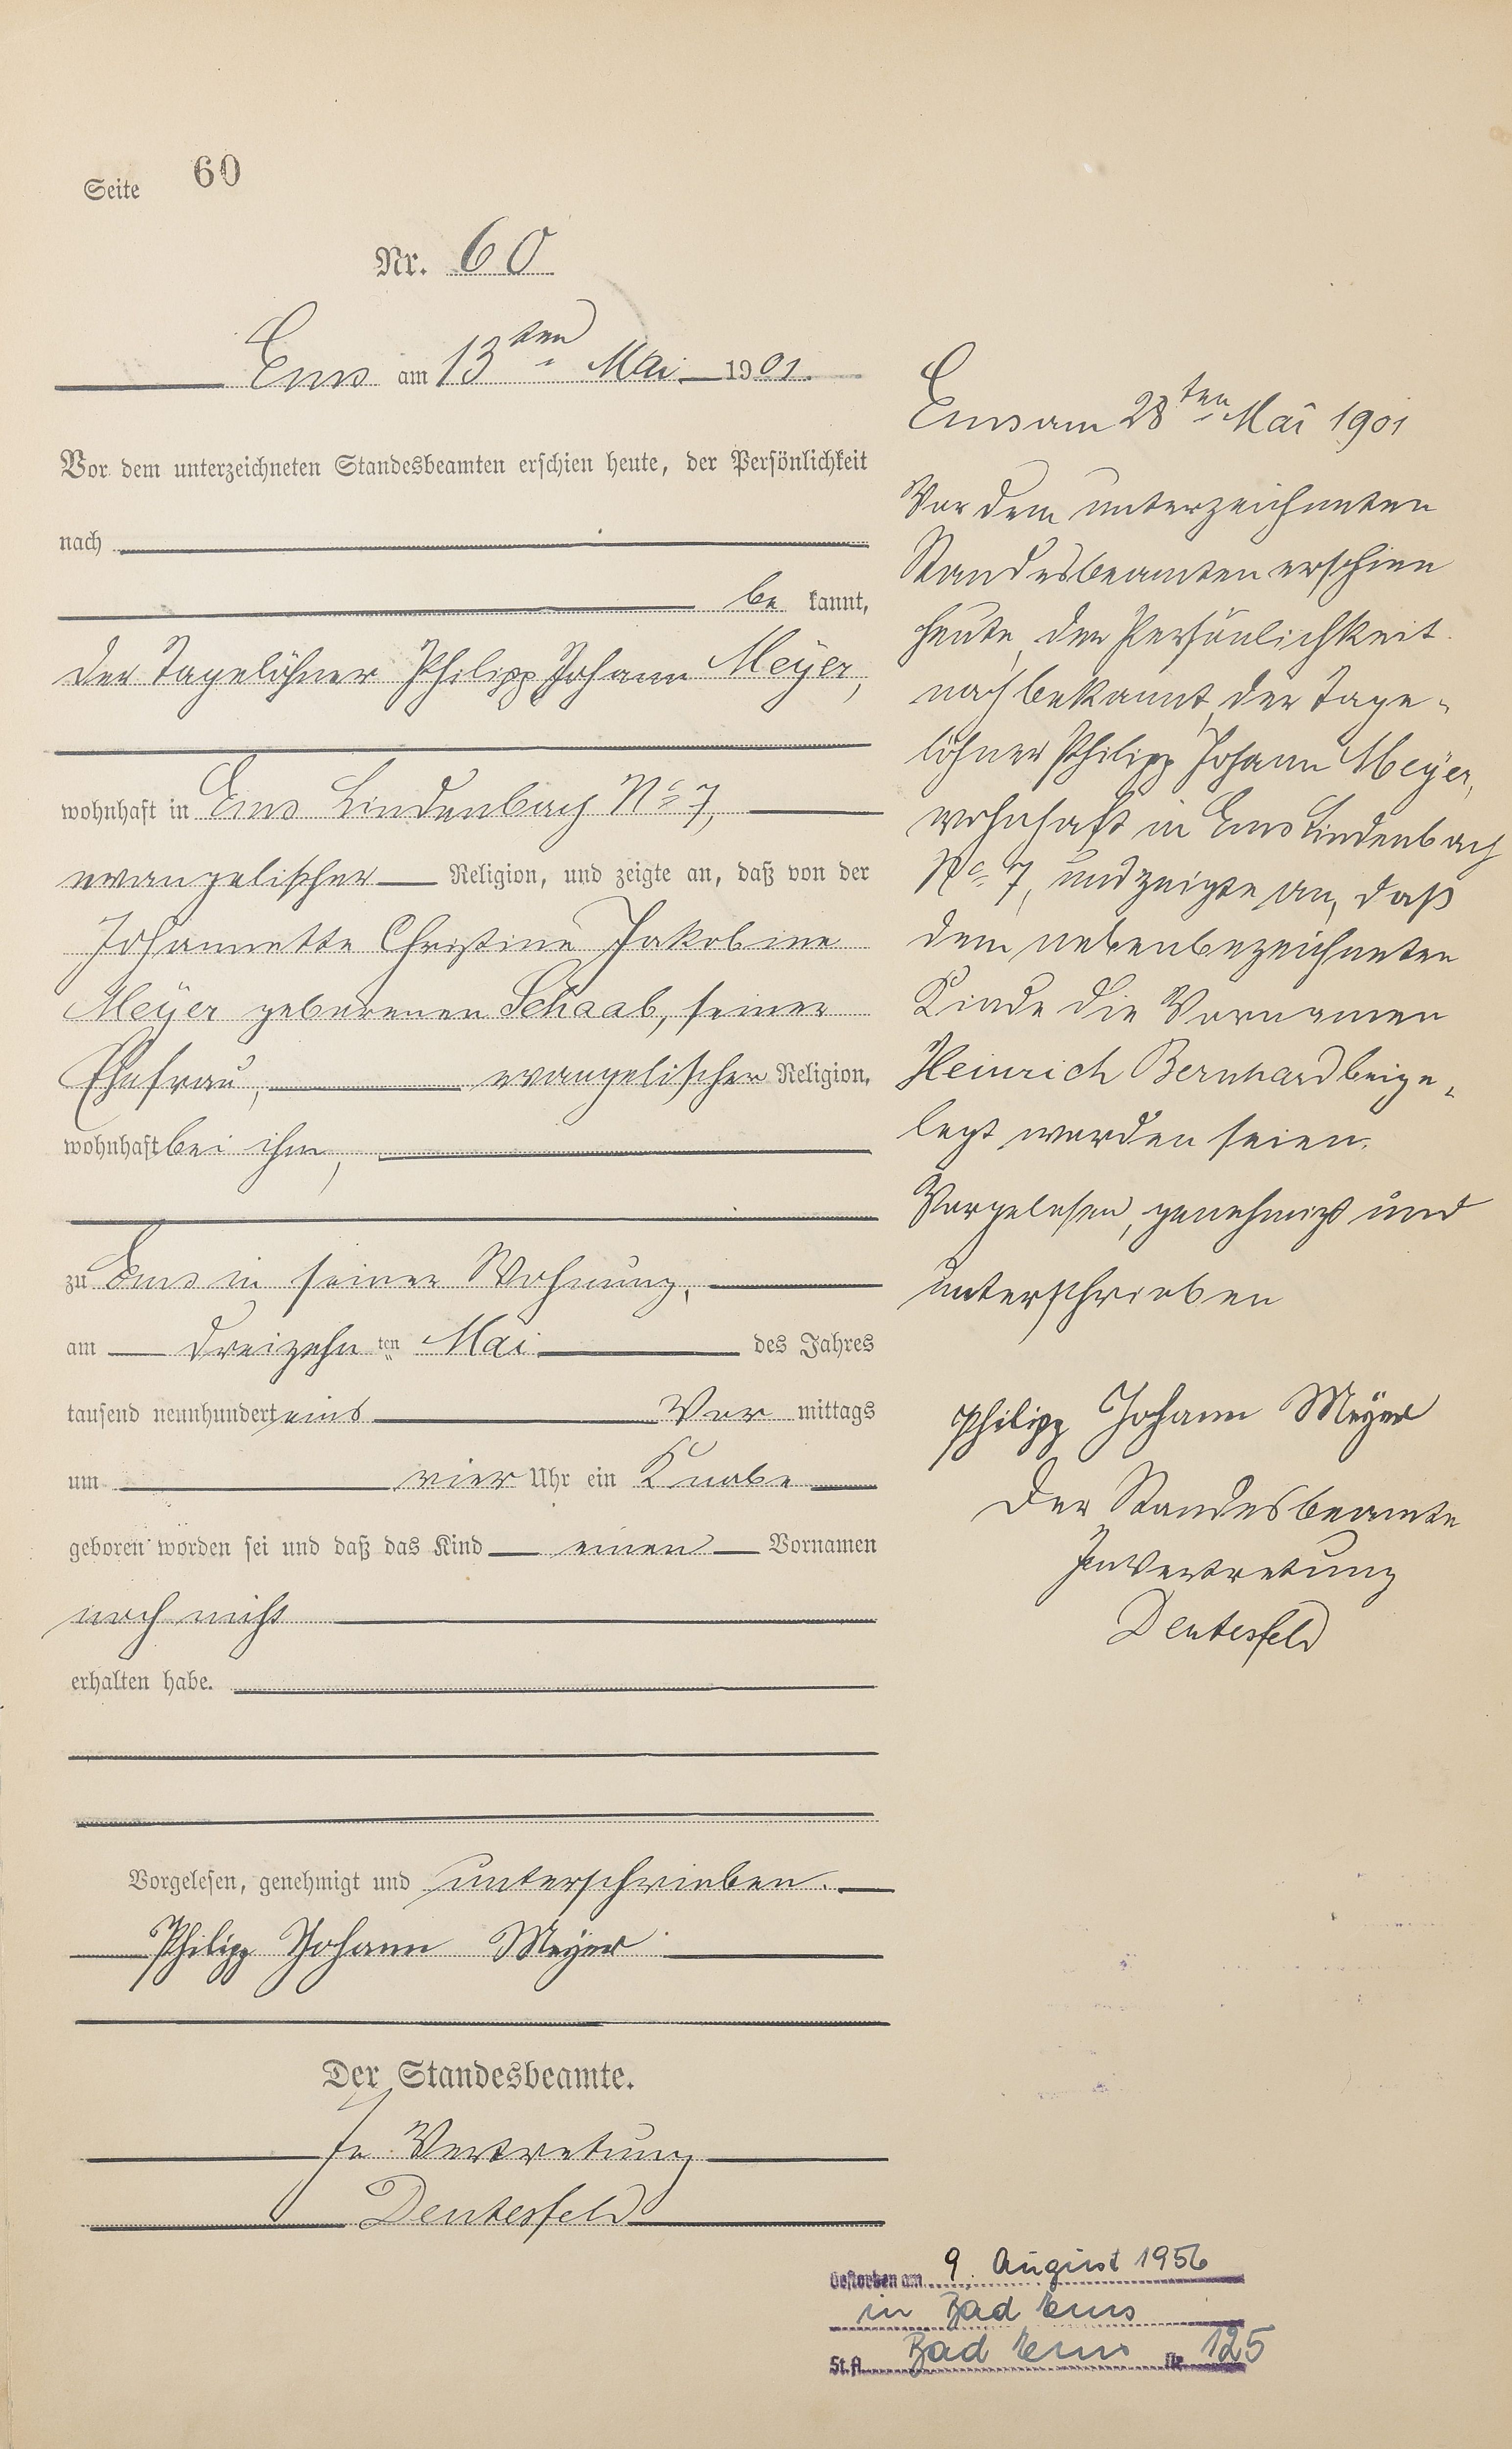 Seite 60
Nr. 60
Ems am 13ten Mai 1901.
Vor dem unterzeichneten Standesbeamten erschien heute, der Persönlichkeit
nach
be kannt,
der Tagelöhner Philipp Johann Meÿer,
wohnhaft in Ems Lindenbach No 7,
evangelischer Religion, und zeigte an, daß von der
Johannette Christine Jakobine
Meÿer geborenen Schaab, seiner
Ehefrau, evangelischer Religion,
wohnhaft bei ihm,
zu Ems in seiner Wohnung,
am dreizehn ten Mai des Jahres
tausend neunhundert eins Vor mittags
um vier Uhr ein Knabe
geboren worden sei und daß das Kind einen Vornamen
noch nicht
erhalten habe.
Vorgelesen, genehmigt und unterschrieben.
Philipp Johann Meÿer
Der Standesbeamte.
In Vertretung
Deutesfeld
Ems am 28ten Mai 1901
Vor dem unterzeichneten
Standesbeamten erschien
heute, der Persönlichkeit
nach bekannt, der Tage-
löhner Philipp Johann Meÿer,
wohnhaft in Ems Lindenbach
No 7, und zeigte an, daß
dem nebenbezeichneten
Kinde die Vornamen
Heinrich Bernhard beige-
legt worden seien.
Vorgelesen, genehmigt und
unterschrieben
Philipp Johann Meÿer
Der Standesbeamte
In Vertretung
Deutesfeld
Gestorben am 9. August 1956
in Bad Ems
St.A. Bad Ems Nr. 125